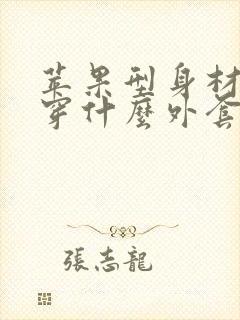 苹果型身材
穿什麼外套
張志龍